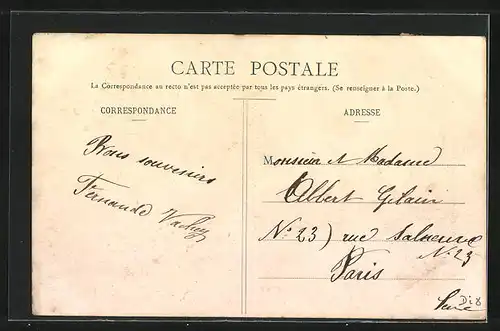 CARTE POSTALE
La Correspondance au recto n'est pas acceptée par tous les pays étrangers. (Se renseigner à la Poste.)
CORRESPONDANCE
Bons souvenirs
Fernande
ADRESSE
Monsieur et Madame
Albert Gelain
No 23) rue
No 23
Paris
Seine